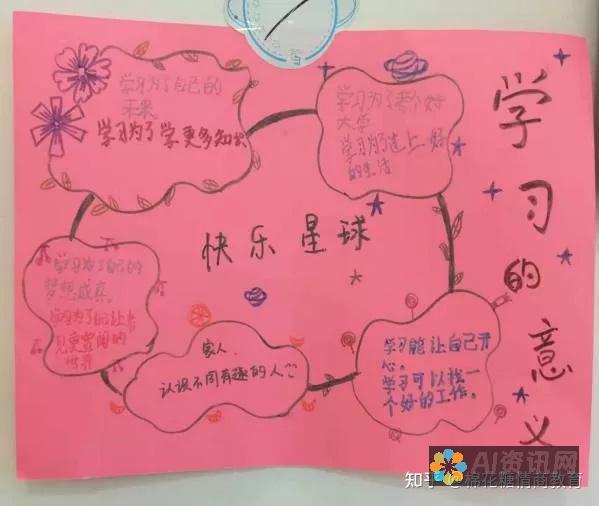 学习的意义
快乐星球
学习为了自己的
未来。
学习为了学更多知识
学习为了考个好
大学
学习为了过上好
的生活
学习为了自己的
梦想成真。
学习为了
见更宽阔的
世界
家人、
认识不同有趣的人
学习能让自己开
心。
学习可以找一
个好的工作。
AI资讯网
知乎 @棉花糖情商教育